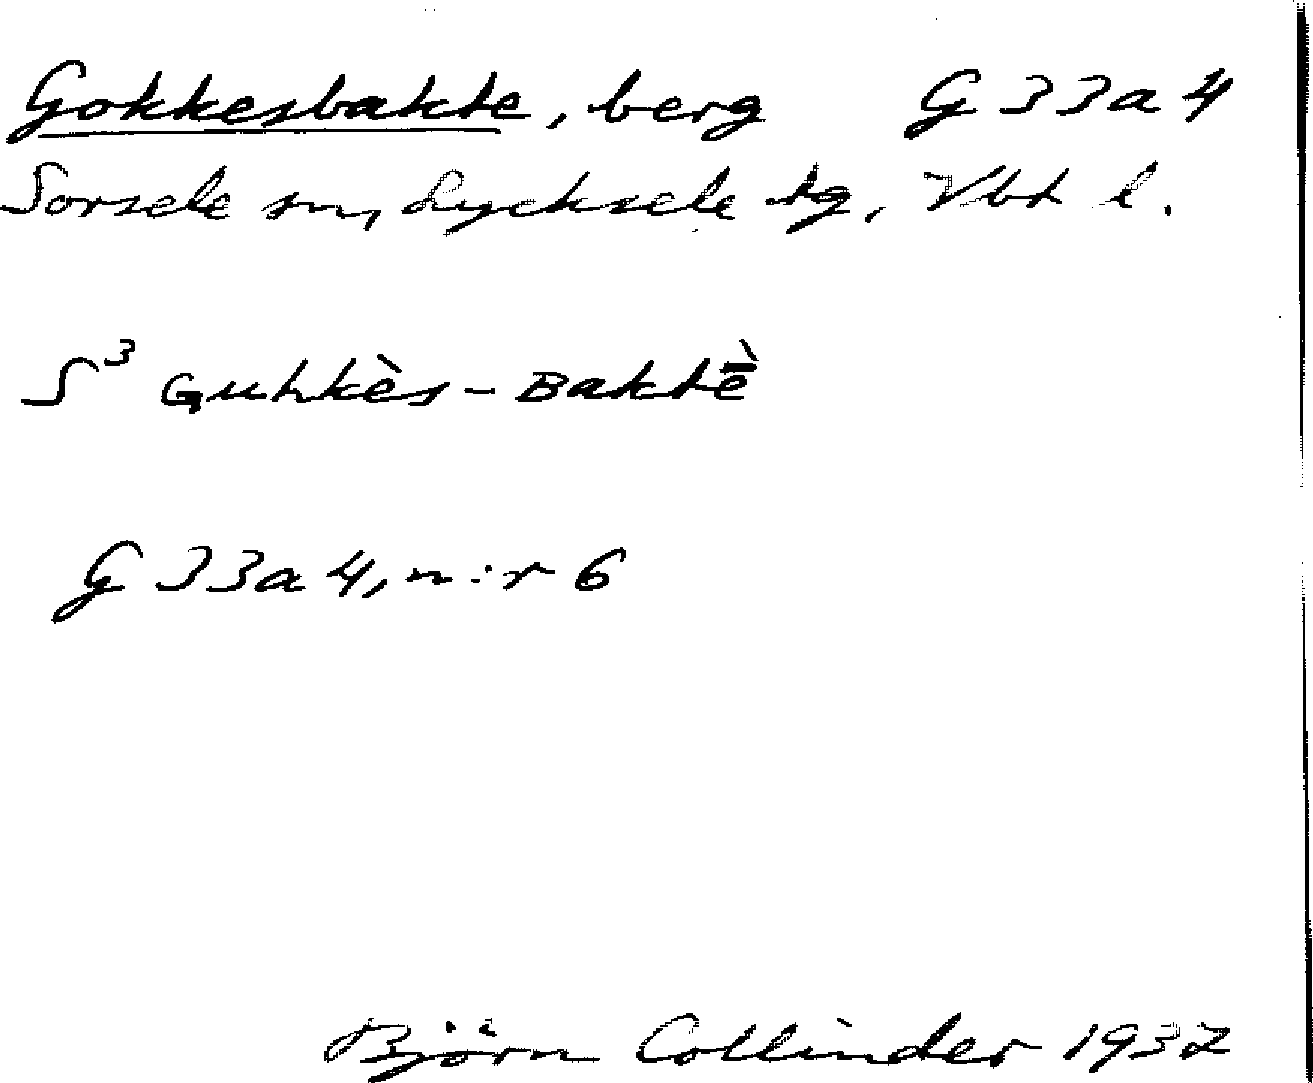 Gokkesbakte, berg G 33a4
Sorsele sn, Lycksele tg, Vbt l.
S³ Guhkès-Baktḕ
G 33a4, n:r 6
Björn Collinder 1937